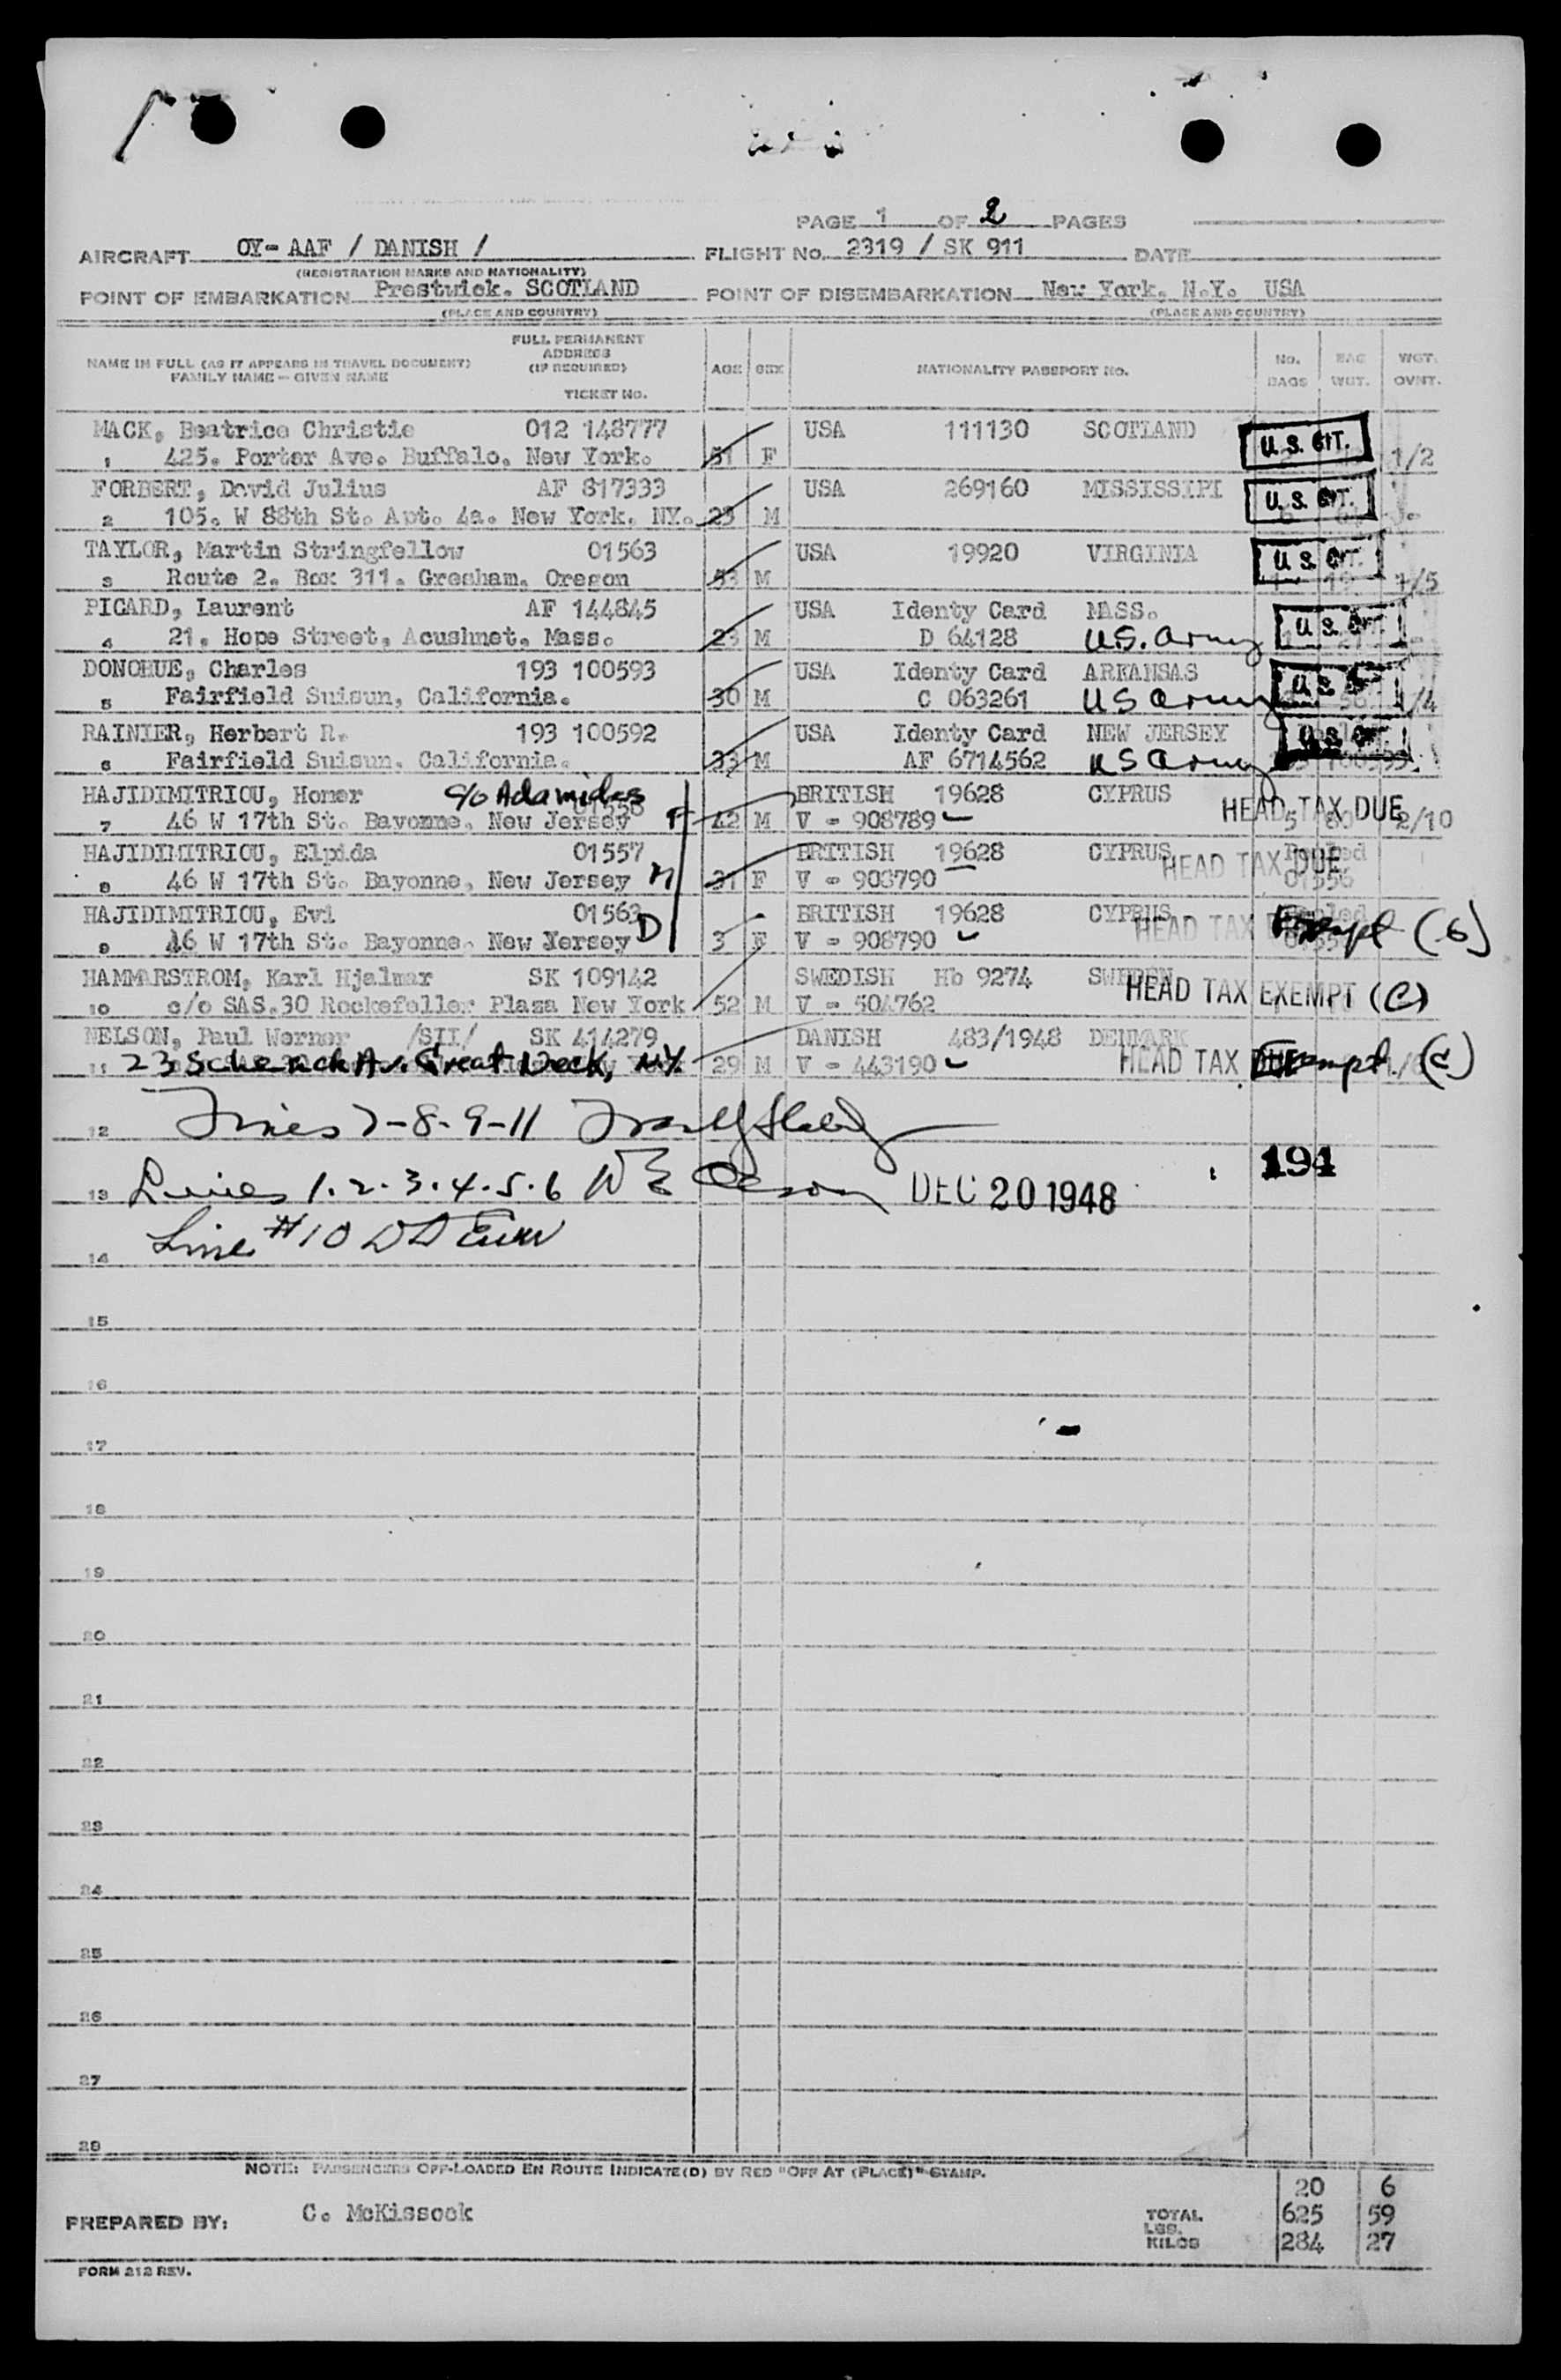 PAGE 1 OF 2 PAGES
AIRCRAFT OY-AAF / DANISH / FLIGHT No. 2319 / SK 911 DATE
(REGISTRATION MARKS AND NATIONALITY)
POINT OF EMBARKATION Prestwick. SCOTLAND POINT OF DISEMBARKATION New York. N.Y. USA
(PLACE AND COUNTRY) (PLACE AND COUNTRY)
NAME IN FULL (AS IT APPEARS IN TRAVEL DOCUMENT) FAMILY NAME - GIVEN NAME FULL PERMANENT ADDRESS (IF REQUIRED) TICKET No. AGE SEX NATIONALITY PASSPORT No. No. BAGS BAG WGT. WGT. OVNT.
MACK, Beatrice Christie 012 148777 USA 111130 SCOTLAND U.S. CIT.
1 425. Porter Ave. Buffalo. New York. 51 F 1/2
FORBERT, David Julius AF 817333 USA 269160 MISSISSIPI U.S. CIT.
2 105. W 88th St. Apt. 4a. New York. NY. 25 M
TAYLOR, Martin Stringfellow 01563 USA 19920 VIRGINIA U.S. CIT.
3 Route 2. Box 311. Gresham. Oregon 53 M 1/5
PICARD, Laurent AF 144845 USA Identy Card MASS. U.S. CIT.
4 21. Hope Street, Acushnet. Mass. 23 M D 64128 U.S. Army
DONOHUE, Charles 193 100593 USA Identy Card ARKANSAS U.S.
5 Fairfield Suisun, California. 30 M C 063261 US Army 1/4
RAINIER, Herbert R. 193 100592 USA Identy Card NEW JERSEY U.S. CIT.
6 Fairfield Suisun. California. 33 M AF 6714562 US Army
HAJIDIMITRIOU, Homer c/o Adamides BRITISH 19628 CYPRUS HEAD TAX DUE
7 46 W 17th St. Bayonne, New Jersey F 42 M V - 908789 5 80 2/10
HAJIDIMITRIOU, Elpida 01557 BRITISH 19628 CYPRUS HEAD TAX DUE Pooled
8 46 W 17th St. Bayonne, New Jersey M 31 F V - 908790 01556
HAJIDIMITRIOU, Evi 01563 BRITISH 19628 CYPRUS HEAD TAX Exempt (6)
9 46 W 17th St. Bayonne. New Yersey D 3 F V - 908790
HAMMARSTROM, Karl Hjalmar SK 109142 SWEDISH Hb 9274 SWEDEN HEAD TAX EXEMPT (C)
10 c/o SAS.30 Rockefeller Plaza New York 52 M V - 504762
NELSON, Paul Werner /SII/ SK 414279 DANISH 483/1948 DENMARK
11 23 Schenck Av. Great Neck, NY. 29 M V - 443190 HEAD TAX DUE Exempt (C)
12 Lines 7-8-9-11
194
13 Lines 1.2.3.4.5.6 DEC 20 1948
14 Line #10
15
16
17
18
19
20
21
22
23
24
25
26
27
28
NOTE: PASSENGERS OFF-LOADED EN ROUTE INDICATE(D) BY RED "OFF AT (PLACE)" STAMP.
20 6
PREPARED BY: C. McKissock TOTAL LBS. 625 59
KILOS 284 27
FORM 212 REV.